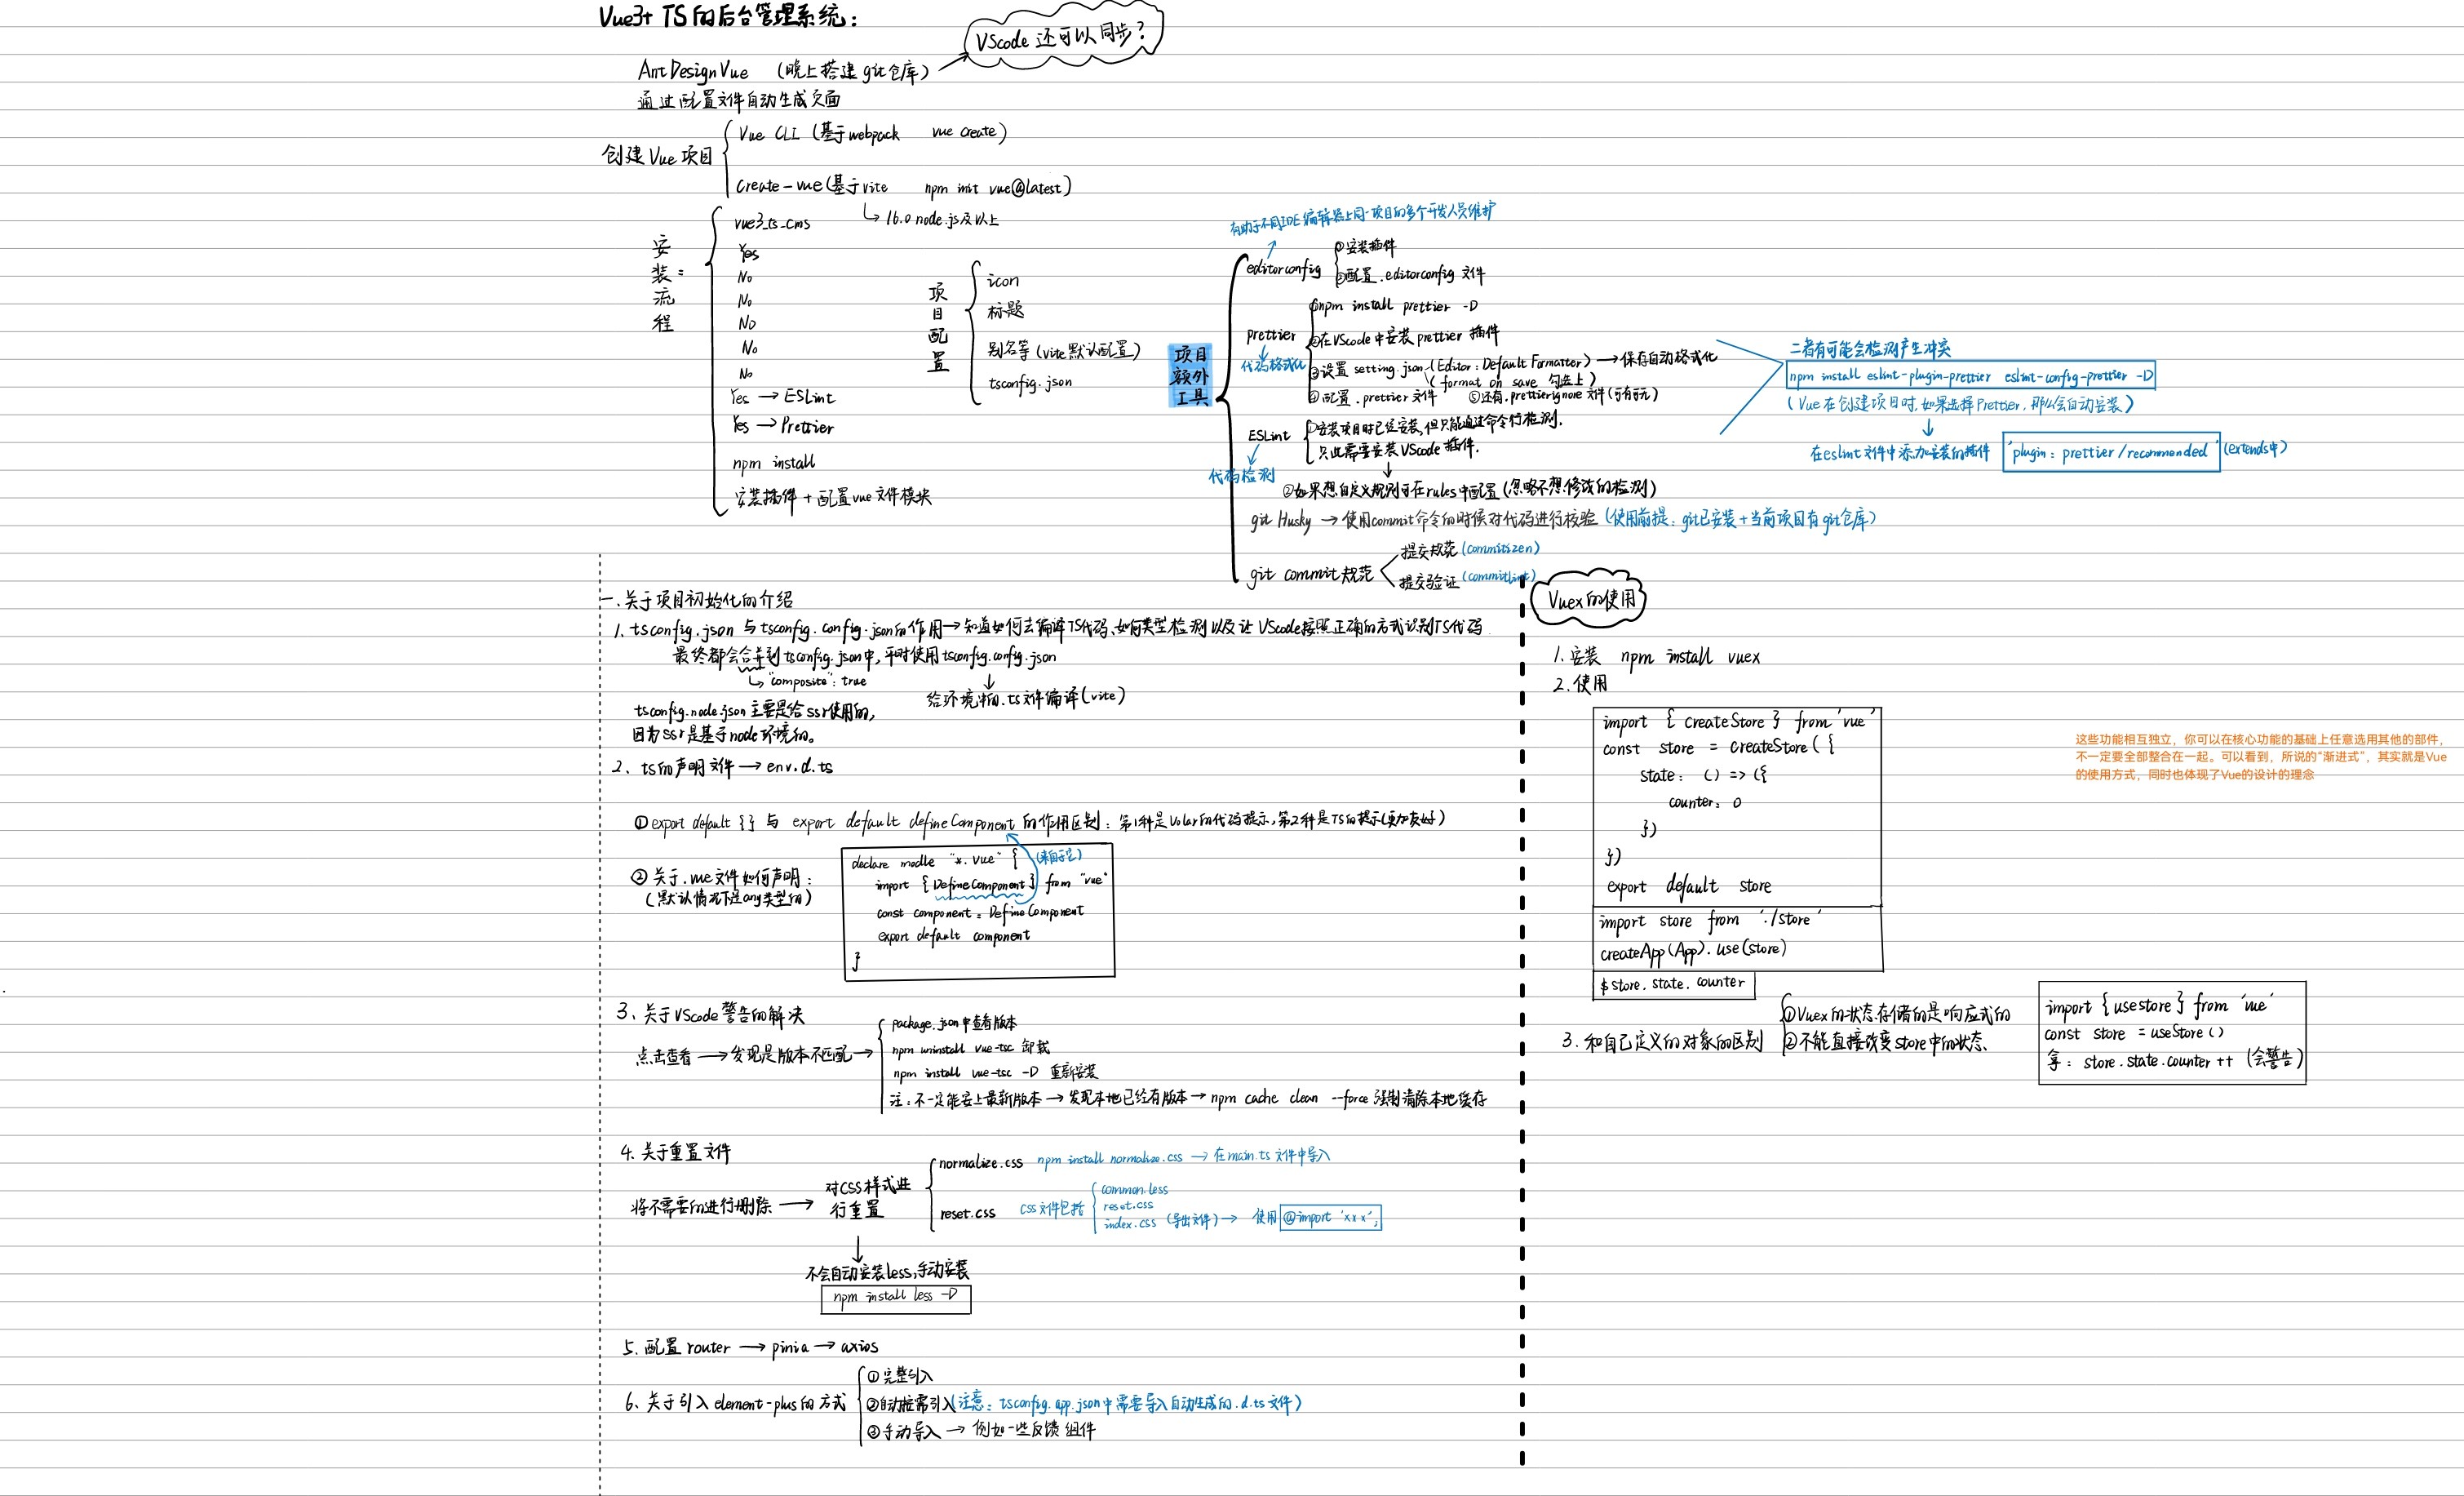 Vue3+ TS的后台管理系统：
VScode 还可以同步？
AntDesignVue （晚上搭建git仓库）
通过配置文件自动生成页面
创建Vue项目
Vue CLI (基于webpack vue create)
create-vue(基于vite npm init vue@latest)
16.0 node.js及以上
安装流程：
vue3_ts_cms
Yes
No
No
No
No
No
Yes → ESLint
Yes → Prettier
npm install
安装插件 + 配置vue文件模块
项目配置
icon
标题
别名等 (vite默认配置)
tsconfig.json
项目额外工具
有助于不同IDE编辑器上同一项目的多个开发人员维护
editorconfig
①安装插件
②配置 .editorconfig 文件
prettier
代码格式化
①npm install prettier -D
②在VScode中安装prettier 插件
③设置 setting.json (Editor: Default Formatter) → 保存自动格式化
( format on save 勾选上 )
④配置 .prettier 文件 ⑤还有.prettierignore 文件(可有可无)
ESLint
代码检测
①安装项目时已经安装,但只能通过命令行检测.
只此需要安装VScode 插件.
②如果想自定义规则可在rules中配置(忽略不想修改的检测)
二者有可能会检测产生冲突
npm install eslint-plugin-prettier eslint-config-prettier -D
( Vue 在创建项目时,如果选择Prettier, 那么会自动安装 )
在eslint文件中添加安装的插件 'plugin: prettier/recommended' (extends中)
git Husky → 使用commit命令的时候对代码进行校验 (使用前提：git已安装+当前项目有git仓库)
git commit规范
提交规范 (commitizen)
提交验证 (commitlint)
一.关于项目初始化的介绍
1. tsconfig.json 与 tsconfig.config.json的作用→知道如何去编译TS代码、如何类型检测以及让VScode按照正确的方式识别TS代码.
最终都会合并到tsconfig.json中,平时使用tsconfig.config.json
"composite": true
给环境中的.ts文件编译(vite)
tsconfig.node.json 主要是给ssr使用的,
因为ssr是基于node环境的。
2. ts的声明文件 → env.d.ts
①export default {} 与 export default defineComponent 的作用区别：第1种是Volar的代码提示,第2种是TS的提示(更加友好)
② 关于.vue文件如何声明：
(默认情况下是any类型的)
declare modle "*.vue" {
(来自于它)
import { DefineComponent } from "vue"
const component: DefineComponent
export default component
}
3. 关于VScode警告的解决
点击查看 → 发现是版本不匹配 →
package.json中查看版本
npm uninstall vue-tsc 卸载
npm install vue-tsc -D 重新安装
注：不一定能安上最新版本 → 发现本地已经有版本 → npm cache clean --force 强制清除本地缓存
4. 关于重置文件
将不需要的进行删除 → 对CSS样式进行重置
normalize.css npm install normalize.css → 在main.ts 文件中导入
reset.css CSS文件包括
common.less
reset.css
index.css (导出文件) → 使用 @import 'xxx';
不会自动安装less,手动安装
npm install less -D
5. 配置router → pinia → axios
6. 关于引入element-plus的方式
①完整引入
②自动按需引入(注意：tsconfig.app.json中需要导入自动生成的.d.ts文件)
③手动导入 → 例如一些反馈组件
Vuex的使用
1. 安装 npm install vuex
2. 使用
import { createStore } from 'vue'
const store = createStore({
state: () => ({
counter: 0
})
})
export default store
import store from './store'
createApp(App).use(store)
$store.state.counter
这些功能相互独立，你可以在核心功能的基础上任意选用其他的部件，
不一定要全部整合在一起。可以看到，所说的“渐进式”，其实就是Vue
的使用方式，同时也体现了Vue的设计的理念
3. 和自己定义的对象的区别
①Vuex的状态存储的是响应式的
②不能直接改变store中的状态、
import { usestore } from 'vue'
const store = useStore()
store.state.counter ++ (会警告)